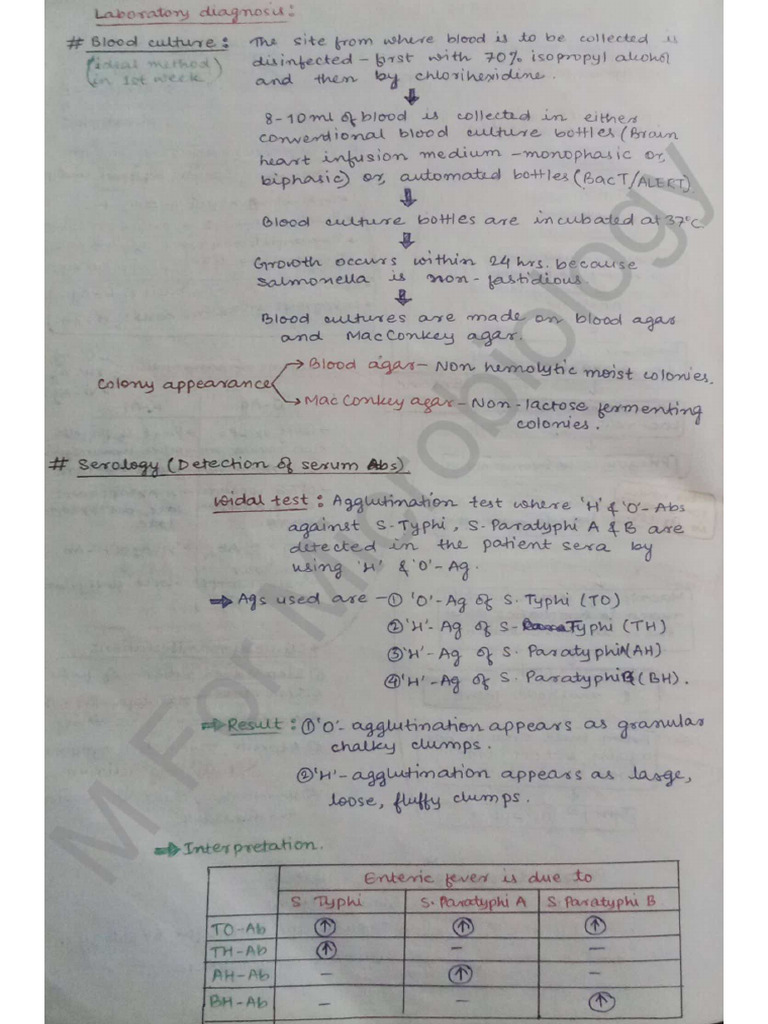 Laboratory diagnosis:
# Blood culture: The site from where blood is to be collected is
(ideal method disinfected - first with 70% isopropyl alcohol
in 1st week) and then by chlorihexidine.
8-10ml of blood is collected in either
conventional blood culture bottles (Brain
heart infusion medium - monophasic or,
biphasic) or, automated bottles (BacT/ALERT)
Blood culture bottles are incubated at 37°C
Growth occurs within 24 hrs. because
Salmonella is non-fastidious.
Blood cultures are made on blood agar
and MacConkey agar.
Colony appearance
Blood agar - Non hemolytic moist colonies.
Mac Conkey agar - Non-lactose fermenting
colonies.
# Serology (Detection of serum Abs)
Widal test: Agglutination test where 'H' & 'O'- Abs
against S-Typhi, S-Paratyphi A & B are
detected in the patient sera by
using 'H' & 'O'-Ag.
⇒ Ags used are - ① 'O'-Ag of S. Typhi (TO)
② 'H'- Ag of S- Typhi (TH)
③ 'H'- Ag of S. Paratyphi A (AH)
④ 'H'-Ag of S. Paratyphi B (BH).
⇒ Result: ① 'O'- agglutination appears as granular
chalky clumps.
② 'H'- agglutination appears as large,
loose, fluffy clumps.
⇒ Interpretation.
Enteric fever is due to
S. Typhi S. Paratyphi A S Paratyphi B
TO-Ab ↑ ↑ ↑
TH-Ab ↑ - -
AH-Ab - ↑ -
BH-Ab - - ↑
M For Microbiology